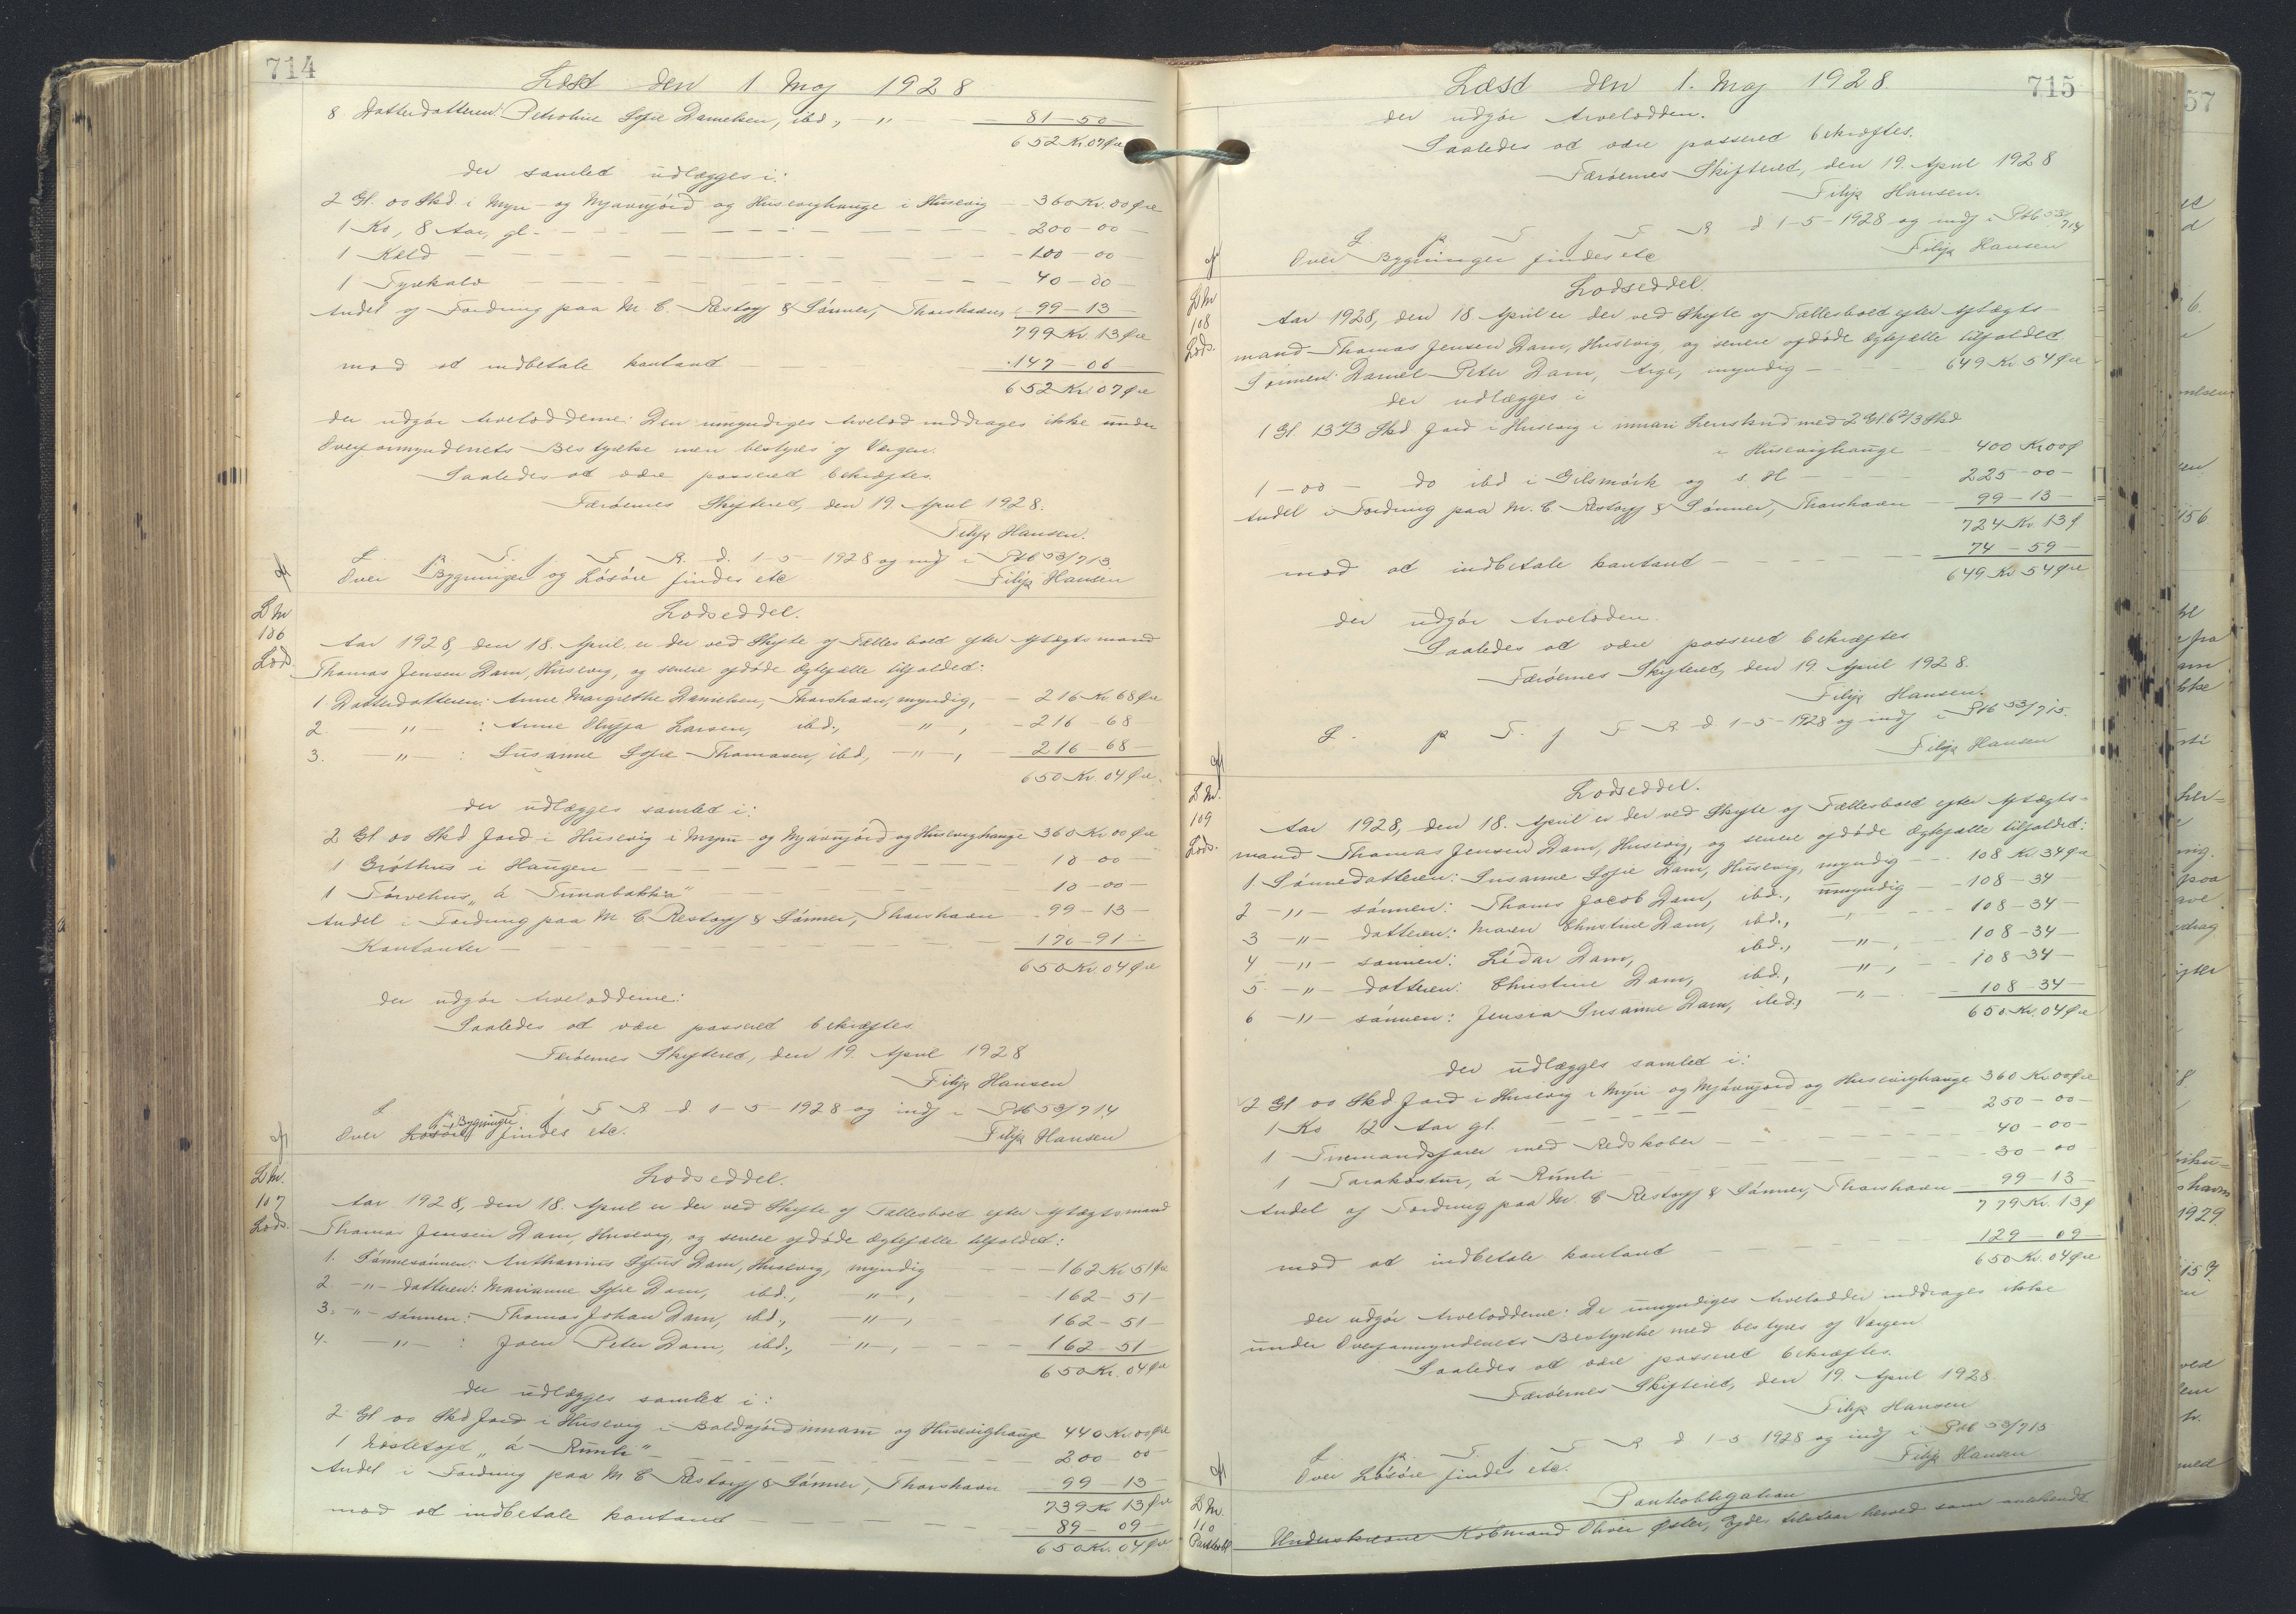 714
Læst den 1 Maj 1928
8 Datterdatteren: Petroline Sofie Danielsen, ibd., — " — 81 — 50 —
652 Kr. 07 Øre
der samlet udlægges i:
2 Gl. 00 Skd i Myri- og Myánnjórd og Husevighauge i Husevig — 360 Kr. 00 Øre
1 Ko, 8 Aar, gl. — 200 — 00 —
1 Kvid — 100 — 00 —
1 Tyrekalv — 40 — 00 —
Andel af Fordring paa M. C. Restorff & Sönner, Thorshavn — 99 — 13 —
799 Kr. 13 Øre
mod at indbetale kontant — 147 — 06 —
652 Kr. 07 Øre
der udgør Arvelodderne. Den umyndiges Arvelod inddrages ikke under
Overformynderiets Bestyrelse men bestyres af Værgen.
Saaledes at være passeret bekræftes.
Færøernes Skifteret, den 19. April 1928.
Filip Hansen.
L. p T. f. F. R. d. 1-5-1928 og indf i Ptb 53/713.
Over Bygninger og Lösöre findes etc Filip Hansen
D Nr
106
Lods.
Lodseddel.
Aar 1928, den 18. April, er der ved Skifte af Fællesboet efter Aftægtsmand
Thomas Jensen Dam, Husevig, og senere afdöde Ægtefælle tilfaldet:
1. Datterdatteren: Anne Margrethe Danielsen, Thorshavn, myndig, — 216 Kr. 68 Øre
2. — " — : Anne Elugja Larsen, ibd., — " — , — 216 — 68 —
3. — " — : Susanne Sofie Thomasen, ibd., — " — , — 216 — 68 —
650 Kr. 04 Øre.
der udlægges samlet i:
2 Gl 00 Skd Jord i Husevig i Myri- og Myánnjórd og Husevighauge 360 Kr. 00 Øre
1 Gróthus i Haugen — 10 — 00 —
1 Törvehus „á Tunabakka" — 10 — 00 —
Andel i Fordring paa M. C. Restorff & Sönner, Thorshavn — 99 — 13 —
Kontanter — 170 — 91 —
650 Kr. 04 Øre
der udgør Arvelodderne:
Saaledes at være passeret bekræftes.
Færøernes Skifteret, den 19. April 1928
Filip Hansen
L p T. f F R d 1-5-1928 og indf i Ptb 53/714
Over Lösöre Bygninger findes etc. Filip Hansen
D Nr.
107
Lods.
Lodseddel.
Aar 1928, den 18. April er der ved Skifte af Fællesboet efter Aftægtsmand
Thomas Jensen Dam, Husevig, og senere afdöde Ægtefælle tilfaldet:
1. Sönnesönnen: Anthonius Sofus Dam, Husevig, myndig — 162 Kr 51 Øre
2. — " — datteren: Marianne Sofie Dam, ibd., — " — , — 162 — 51 —
3. — " — sönnen: Thomas Johan Dam, ibd., — " — , 162 — 51 —
4. — " — : Joen Peter Dam, ibd., — " — , — 162 — 51 —
650 Kr. 04 Øre
der udlægges samlet i:
2 Gl 00 Skd Jord i Husevig i Boldsjórd innaru og Husevighauge 440 Kr. 00 Øre
1 Hostetoft „á Rúnli" — 200 00 —
Andel i Fordring paa M C Restorff & Sönner, Thorshavn — 99 — 13 —
739 Kr 13 Øre
mod at indbetale kontant — 89 — 09 —
650 Kr. 04 Øre
715
Læst den 1. Maj 1928.
der udgør Arvelodden.
Saaledes at være passeret bekræftes.
Færøernes Skifteret, den 19. April 1928
Filip Hansen.
L p T f F R d 1-5-1928 og indf i Ptb 53/714
Over Bygninger findes etc Filip Hansen
D Nr
108
Lods.
Lodseddel.
Aar 1928, den 18 April er der ved Skifte af Fællesboet efter Aftægts-
mand Thomas Jensen Dam, Husevig, og senere afdöde Ægtefælle tilfaldet
Sönnen: Daniel Peter Dam, Arge, myndig — 649 Kr 54 Øre
der udlægges i
1 Gl. 13 1/3 Skd Jord i Husevig i innari Lenskud med 2 Gl. 6 2/3 Skd
i Husevighauge — 400 Kr 00 Ø
1 — 00 — do ibd i Gilsmörk og s. H — 225 — 00 —
Andel i Fordring paa M. C Restorff & Sönner, Thorshavn — 99 — 13 —
724 Kr. 13 Ø
mod at indbetale kontant — 74 — 59 —
649 Kr 54 Øre
der udgør Arvelodden.
Saaledes at være passeret bekræftes
Færøernes Skifteret, den 19. April 1928.
Filip Hansen.
L. p T. f F R d 1-5-1928 og indf i Ptb 53/715.
Filip Hansen
D Nr.
109
Lods.
Lodseddel.
Aar 1928, den 18. April er der ved Skifte af Fællesboet efter Aftægts-
mand Thomas Jensen Dam, Husevig, og senere afdöde Ægtefælle tilfaldet:
1 Sönnedatteren: Susanne Sofie Dam, Husevig, myndig — 108 Kr 34 Øre
2 — " — sönnen: Thomas Jacob Dam, ibd., umyndig — 108 — 34 —
3 — " — datteren: Maren Christine Dam, ibd., — " — 108 — 34 —
4 — " — sönnen: Lídar Dam, ibd., — " — , 108 — 34 —
5 — " — datteren: Christine Dam, ibd., — " — , 108 — 34 —
6 — " — sönnen: Jensia Susanne Dam, ibd., — " — 108 — 34 —
650 Kr. 04 Øre
der udlægges samlet i:
2 Gl 00 Skd Jord i Husevig i Myri- og Myánnjord og Husevighauge 360 Kr. 00 Øre
1 Ko 12 Aar gl. — 250 — 00 —
1 Tremandsfarer med Redskaber — 40 — 00 —
1 Tarakostur, á Rúnli — 30 — 00
Andel af Fordring paa M. C Restorff & Sönner, Thorshavn — 99 — 13 —
779 Kr. 13 Ø
mod at indbetale kontant — 129 — 09 —
650 Kr. 04 Øre
der udgør Arvelodderne: De umyndiges Arvelodder inddrages ikke
under Overformynderiets Bestyrelse med bestyres af Værgen.
Saaledes at være passeret bekræftes.
Færøernes Skifteret, den 19. April 1928.
Filip Hansen
L p. T. f. F R d 1-5 1928 og indf i Ptb 53/715
Over Lösöre findes etc. Filip Hansen
D Nr.
110
Pantobl
Panteobligation
Underskrevne Köbmand Oliver Øster, Ejde, tilstaar herved som vitterligt
57